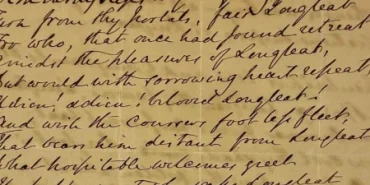 from thy portals, fair Longleat
For who, that once had found retreat
Amidst the pleasures of Longleat,
But would with sorrowing heart repeat,
Adieu! adieu! beloved Longleat!
And wish the coursers foot less fleet,
That bears him distant from Longleat
What hospitable welcomes greet
Longleat